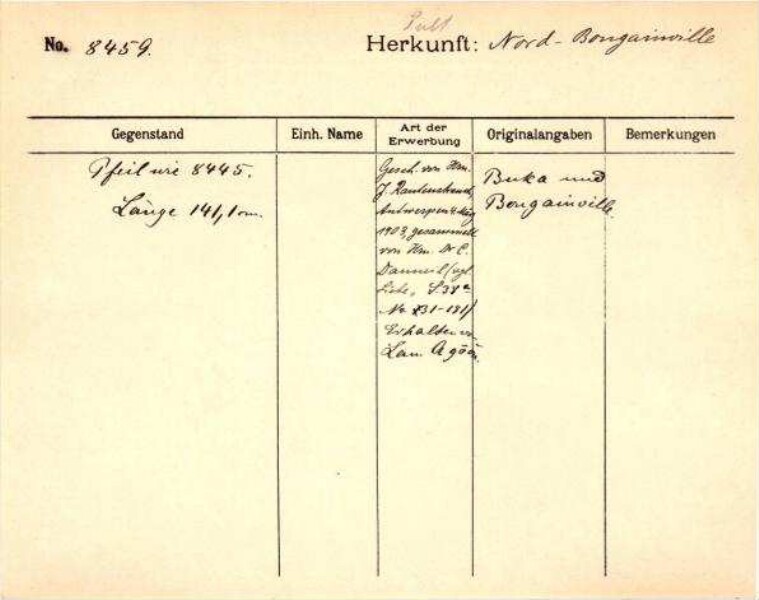 Pult
No. 8459. Herkunft: Nord-Bougainville
Gegenstand Einh. Name Art der Erwerbung Originalangaben Bemerkungen
Pfeil wie 8445.
Länge 141,1 cm.
Gesch. von Hrn.
J. Rautenstrauch,
Antwerpen
1903, gesammelt
von Hrn. Dr C.
Danneil (vgl.
Liste, S. 38a
No 131-181)
Erhalten
Lau.
Buka und
Bougainville.